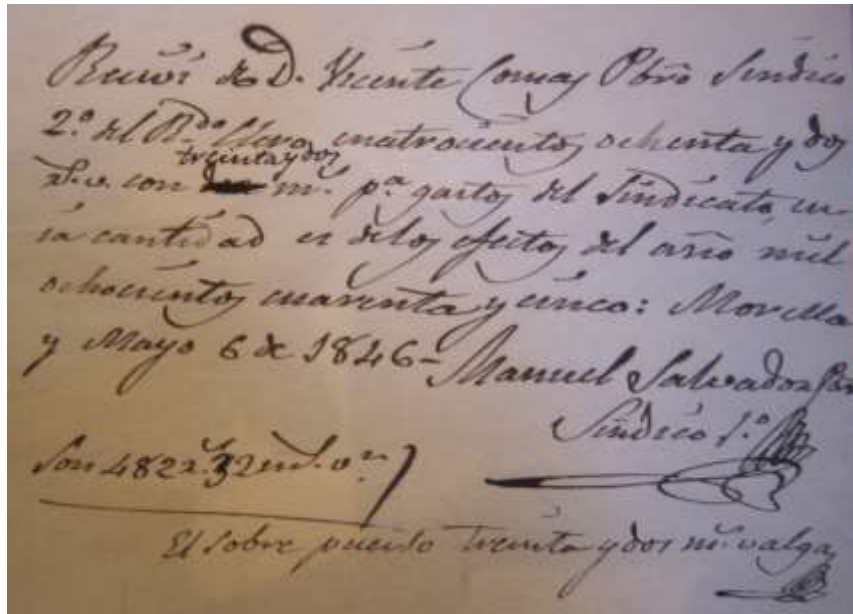 Recivi de D. Vicente Comas Pbro Sindico
2.º del R.do Clero cuatrocientos ochenta y dos
treinta y dos
rs. v. con m.s p.a gastos del Sindicato, cu-
ia cantidad es delos efectos del año mil
ochocientos cuarenta y cinco: Morella
y Mayo 6 de 1846-
Manuel Salvador Pbro
Sindico 1.º
Son 482 rs. 32 m.s v.n
El sobre puesto treinta y dos m.s valga